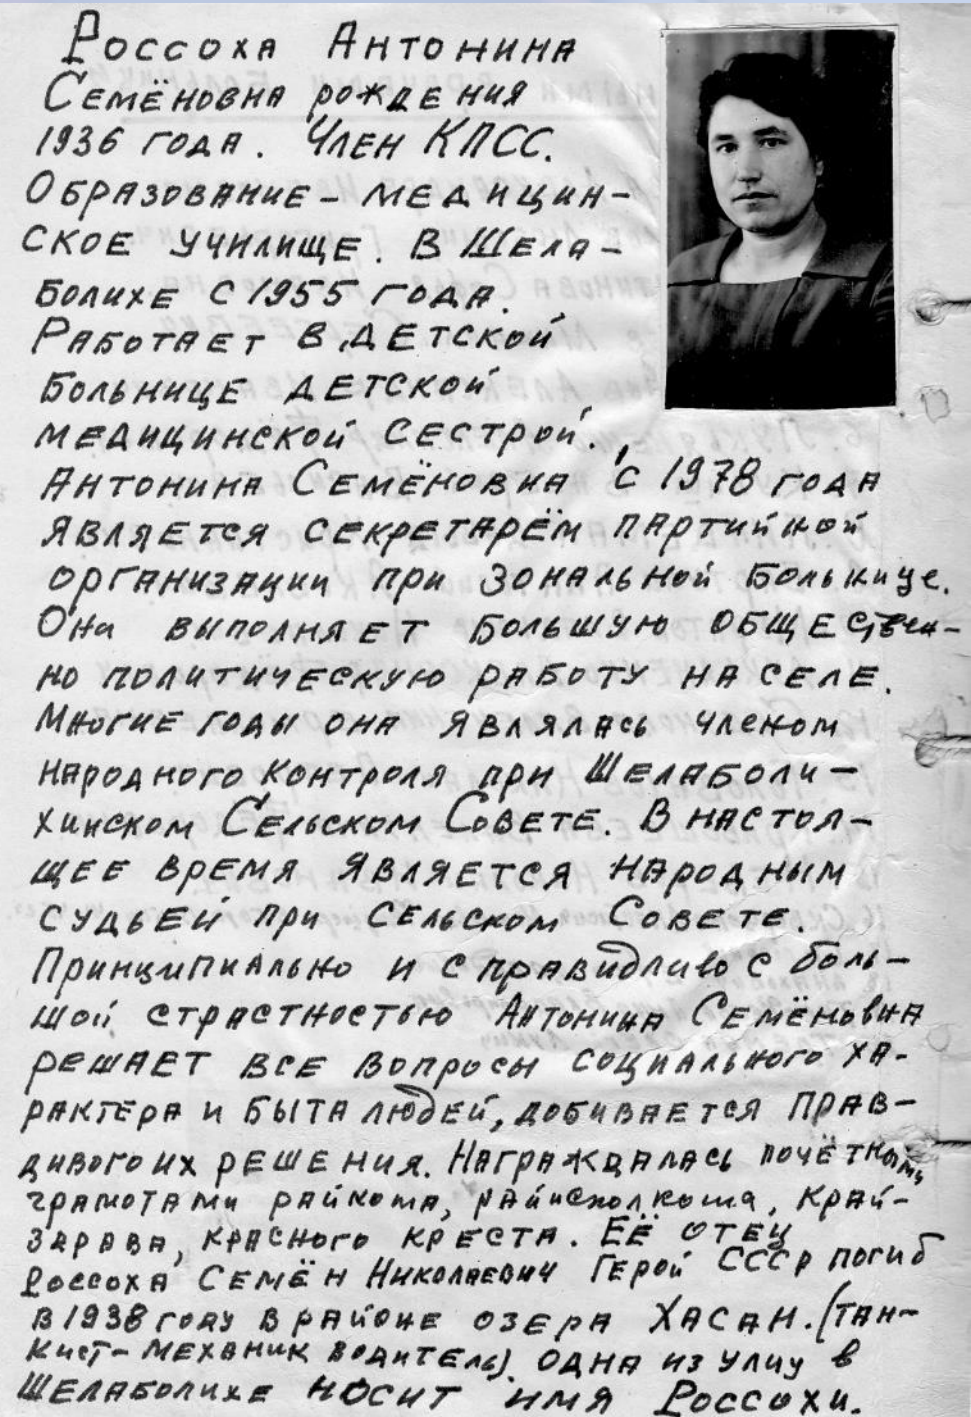 Россоха Антонина
Семёновна рождения
1936 года. Член КПСС.
Образование – медицин-
ское училище. В Шела-
болихе с 1955 года.
Работает в детской
больнице детской
медицинской сестрой.
Антонина Семёновна с 1978 года
является секретарём партийной
организации при зональной больнице.
Она выполняет большую обществен-
но политическую работу на селе.
Многие годы она являлась членом
народного контроля при Шелаболи-
хинском Сельском Совете. В настоя-
щее время является народным
судьей при сельском Совете.
Принципиально и справидливо с боль-
шой страстностью Антонина Семёновна
решает все вопросы социального ха-
рактера и быта людей, добивается прав-
дивого их решения. Награждалась почётными
грамотами райкома, райисполкома, край-
здрава, красного креста. Её отец
Россоха Семён Николаевич Герой СССР погиб
в 1938 году в районе озера Хасан. (тан-
кист-механик водитель). одна из улиц в
Шелаболихе носит имя Россохи.